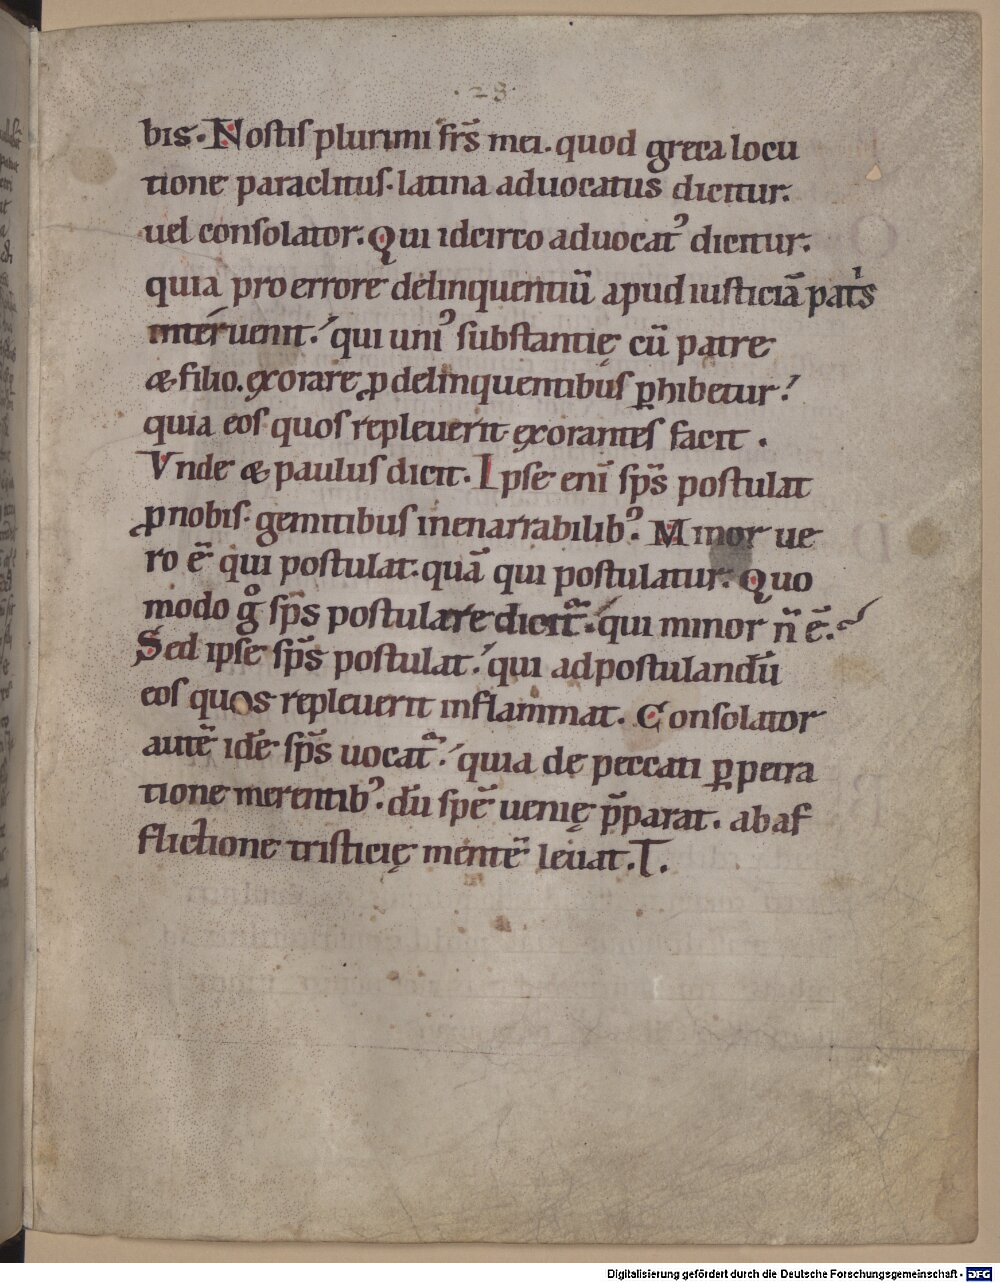 ·28·
bis. Nostis plurimi fr̄s mei. quod greca locu
tione paraclitus. latina aduocatus dicitur.
uel consolator. Qui idcirco aduocat᾿ dicitur.
quia pro errore delinquentiū apud iusticiā pat̍s
interuenit. qui uni᾿ substantię cū patre
& filio. exorare ꝓ delinquentibus ꝑhibetur.
quia eos quos repleuerit exorantes facit.
Vnde & paulus dicit. Ipse enī sp̄s postulat
ꝓ nobis. gemitibus inenarrabilib᾿. Minor ue
ro ē qui postulat. quā qui postulatur. Quo
modo gͦ sp̄s postulare dicit̄. qui minor n̄ ē.
Sed ipse sp̄s postulat. qui ad postulandū
eos quos repleuerit inflammat. Consolator
autē idē sp̄s uocat̄. quia de peccati ꝑpetra
tione merentib᾿. dū spē uenię p̄parat. ab af
flictione tristicię mentē leuat. T.
Digitalisierung gefördert durch die Deutsche Forschungsgemeinschaft - DFG